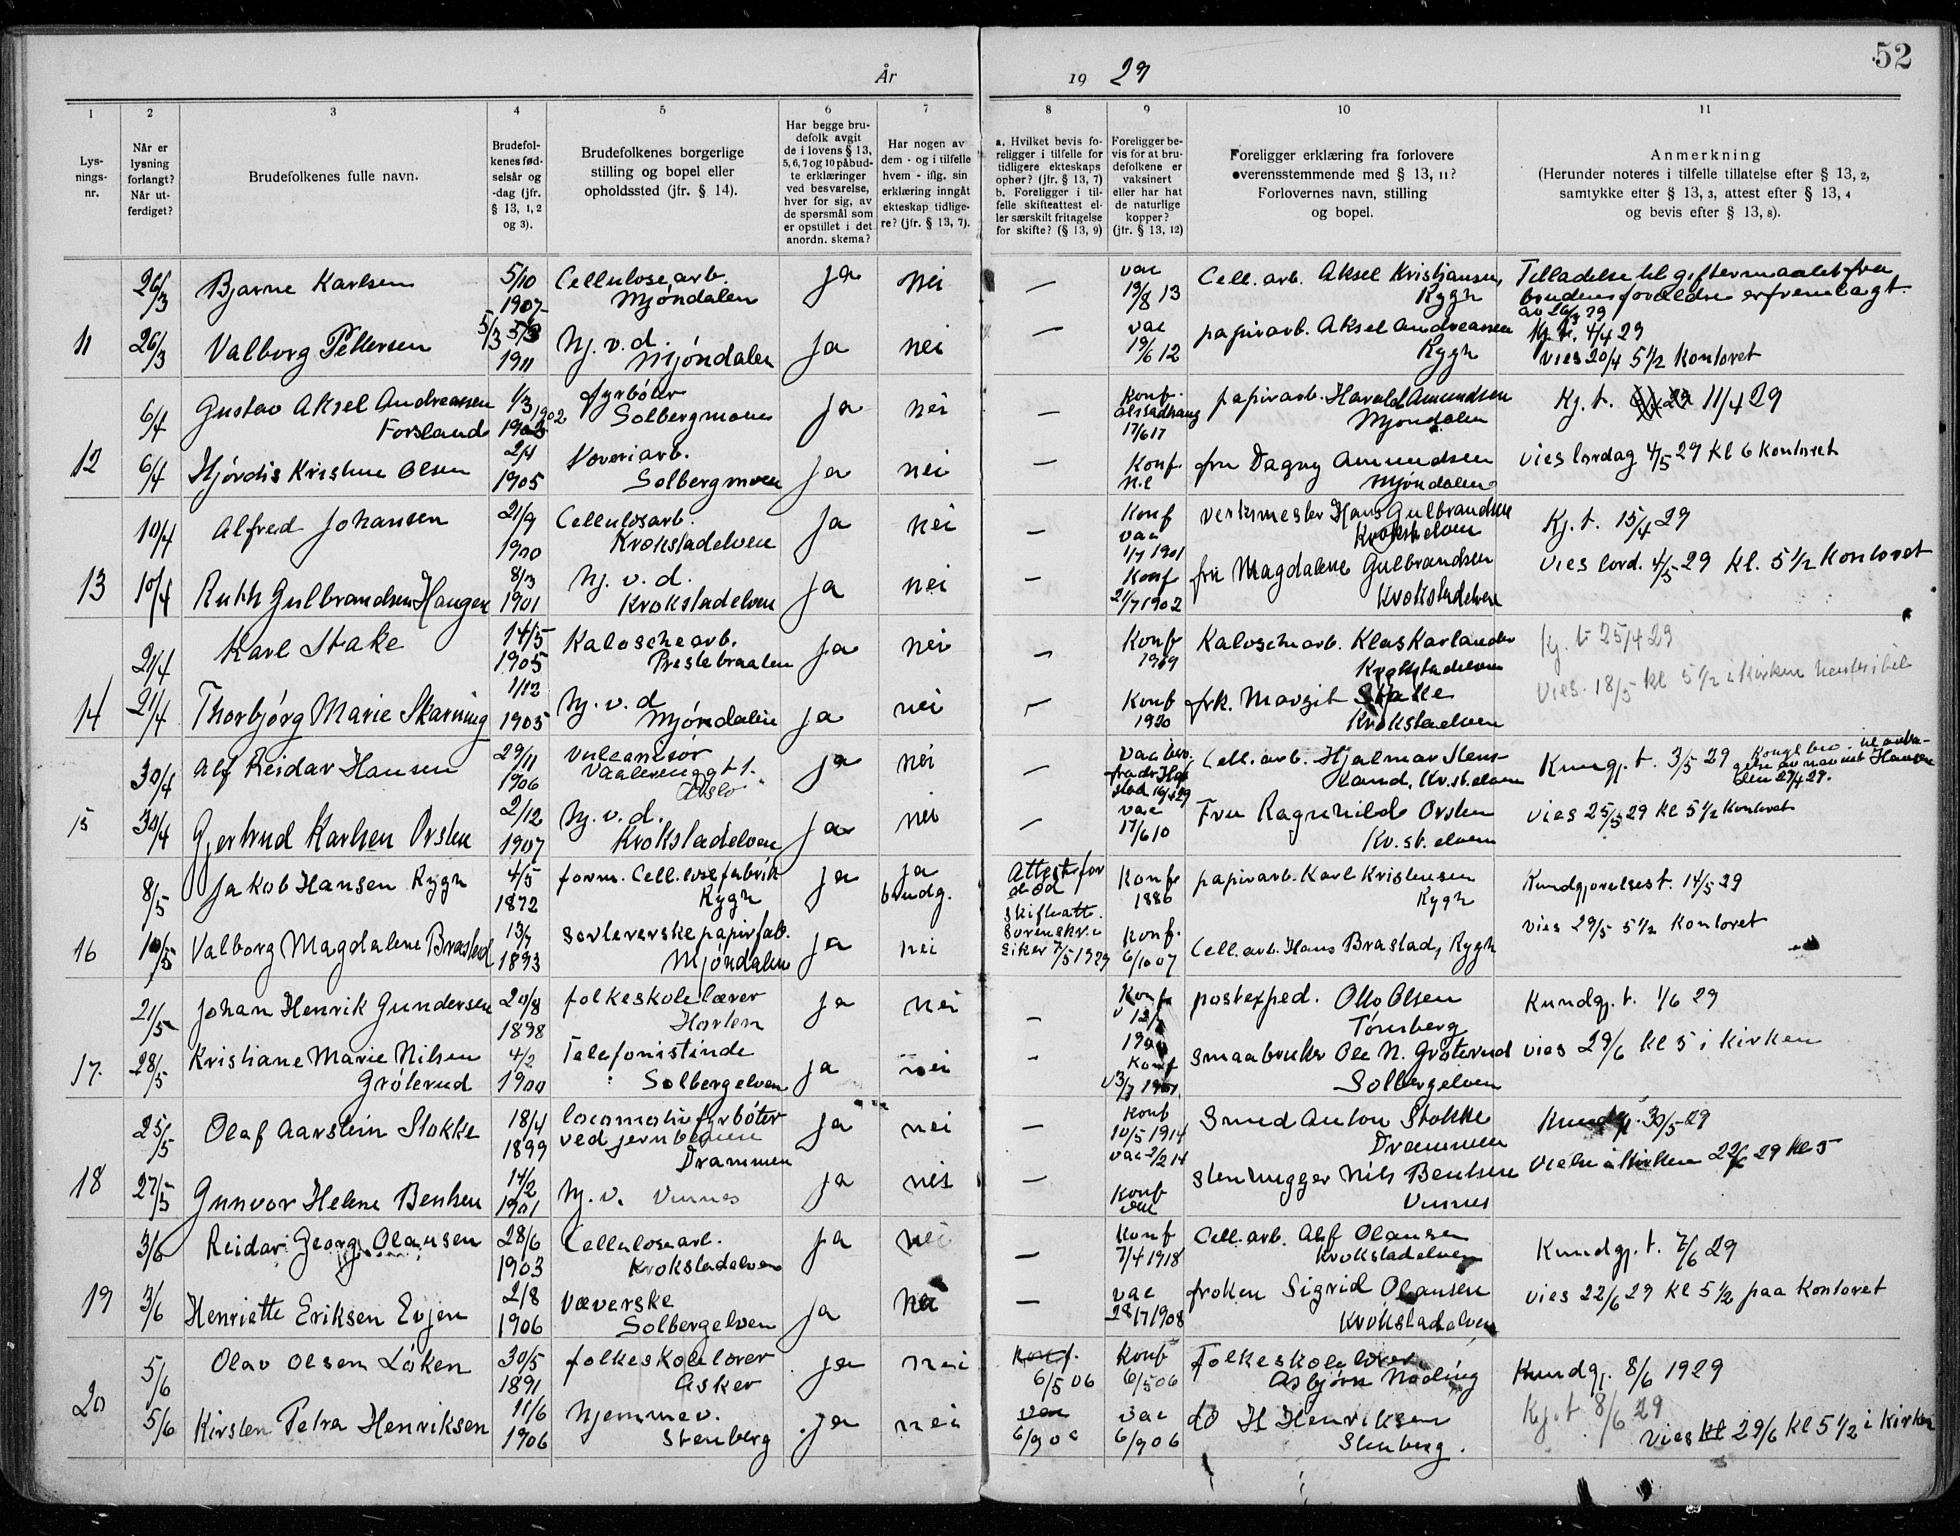 År
19 29
52
1 2 3 4 5 6 7 8 9 10 11
Lys-
nings-
nr.
Når er
lysning
forlangt?
Når ut-
ferdiget?
Brudefolkenes fulle navn.
Brudefol-
kenes fød-
selsår og
-dag (jfr.
§ 13, 1, 2
og 3).
Brudefolkenes borgerlige
stilling og bopel eller
opholdssted (jfr. § 14).
Har begge bru-
defolk avgit
de i lovens § 13,
5, 6, 7 og 10 påbud-
te erklæringer
ved besvarelse,
hver for sig, av
de spørsmål som
er opstillet i det
anordn. skema?
Har nogen av
dem - og i tilfelle
hvem - iflg. sin
erklæring inngått
ekteskap tidlige-
re? (jfr. § 13, 7).
a. Hvilket bevis fo-
religger i tilfelle for
tidligere ekteskaps
ophør? (jfr. § 13, 7)
b. Foreligger i til-
felle skifteattest el-
ler særskilt fritagelse
for skifte? (§ 13, 9)
Foreligger be-
vis for at bru-
defolkene er
vaksinert
eller har hat
de naturlige
kopper?
(jfr. § 13, 12)
Foreligger erklæring fra forlovere
overensstemmende med § 13, 11?
Forlovernes navn, stilling
og bopel.
Anmerkning
(Herunder noteres i tilfelle tillatelse efter § 13, 2,
samtykke efter § 13, 3, attest efter § 13, 4
og bevis efter § 13, 8).
26/3 Bjarne Karlsen 5/10 1907 Cellulosearb. Mjøndalen ja nei — vac 19/8 13 Cell. arb. Aksel Kristiansen, Rygh Tilladelse til giftermaalet fra
brudens forældre er fremlagt.
av 26/3 29
11 26/3 Valborg Pettersen 5/3 1911 Hj. v. d. Mjøndalen ja nei — vac 19/6 12 papirarb. Aksel Andreassen Rygh Kj. t. 4/4 29
vies 20/4 5 1/2 Kontoret
6/4 Gustav Aksel Andreassen Forsland 1/3 1902 fyrbøter Solbergmoen ja nei — Konf. 17/6 17 papirarb. Harald Amundsen Mjøndalen Kj. t. 11/4 29
12 6/4 Hjørdis Kristine Olsen 2/4 1905 Væveriarb. Solbergmoen ja nei — Konf. N.E fru Dagny Amundsen Mjøndalen vies lørdag 4/5 29 kl 6 Kontoret
10/4 Alfred Johansen 21/9 1900 Cellulosarb. Krokstadelven ja nei — Konf vac 1/7 1901 verksmester Hans Gulbrandsen Krokstadelven Kj. t. 15/4 29
13 10/4 Ruth Gulbrandsen Haugen 8/3 1901 Hj. v. d. Krokstadelven ja nei — Konf 21/7 1902 fru Magdalene Gulbrandsen Krokstadelven vies lørd. 4/5 29 kl. 5 1/2 Kontoret
21/4 Karl Stake 14/5 1905 Kaloschearb. Prestebraaten ja nei — Konf 1919 Kaloschearb. Klas Karlander Krokstadelven Kj. t 25/4 29
14 21/4 Thorbjørg Marie Skarning 1/12 1905 Hj. v. d Mjøndalen ja nei — Konf 1920 frk. Margit Stake Krokstadelven Vies. 18/5 kl 5 1/2 i Kirken
30/4 Alf Reidar Hansen 29/11 1906 vulcanisør Vaalerenggt 1. Oslo ja nei — Vac bev. Cell. arb. Hjalmar Stensland, Kr.st.elven Kungj. t. 3/5 29
15 30/4 Gjertrud Karlsen Orsten 2/12 1907 Hj. v. d. Krokstadelven ja nei — vac 17/6 10 Fru Ragnhild Orsten Kr.st. elven vies 25/5 29 kl 5 1/2 Kontoret
8/5 Jakob Hansen Rygh 4/5 1872 form. Cell.losefabrik Rygh ja ja brudg. Attest for død Konf 1886 papirarb. Karl Kristensen Rygh Kundgjørelsest. 14/5 29
16 10/5 Valborg Magdalene Brastad 13/7 1893 sorterverske papirfab. Mjøndalen ja nei Skifteatt. Sorenskr. i Eiker 7/5 1929 Konf. 6/10 07 Cell. arb. Hans Brastad, Rygh vies 29/5 5 1/2 Kontoret
21/5 Johan Henrik Gundersen 20/8 1898 folkeskolelærer Horten ja nei — Konf postexped. Otto Olsen Tønsberg Kundgj. t. 1/6 29
17. 28/5 Kristiane Marie Nilsen Grøterud 4/2 1900 Telefonistinde Solbergelven ja nei — Konf smaabruker Ole N. Grøterud Solbergelven vies 29/6 kl 5 i kirken
25/5 Olaf Aarstein Stokke 18/4 1899 locomotivfyrbøter ved jernbanen Drammen ja nei — Konf 10/5 1914 vac 2/2 14 Smed Anton Stokke Drammen Kundgj. 30/5 29
18 27/5 Gunvor Helene Bentsen 14/2 1901 Hj. v. Vinnes ja nei — Konf vac stenhugger Nils Bentsen Vinnes Vielse i Kirken 22/6 29 kl 5
3/6 Reidar Georg Olausen 28/6 1903 Cellulosearb. Krokstadelven ja nei — Konf 7/4 1918 Cell. arb. Alf Olausen Krokstadelven Kundgj. t. 7/6 29
19 3/6 Henriette Eriksen Evjen 2/8 1906 væverske Solbergelven ja nei — vac 28/7 1908 frøken Sigrid Olausen Krokstadelven vies 22/6 29 kl 5 1/2 paa Kontoret
5/6 Olav Olsen Løken 30/5 1891 folkeskolelærer Asker ja nei Konf. 6/5 06 Konf 6/5 06 Folkeskolelærer Asbjørn Nøding Kundgj. 8/6 1929
20 5/6 Kirsten Petra Henriksen 11/6 1906 hjemmev. Stenberg ja nei vac 6/9 06 vac 6/9 06 do H Henriksen Stenberg. Kj. t 8/6 29
vies kl 29/6 kl 5 1/2 i kirken